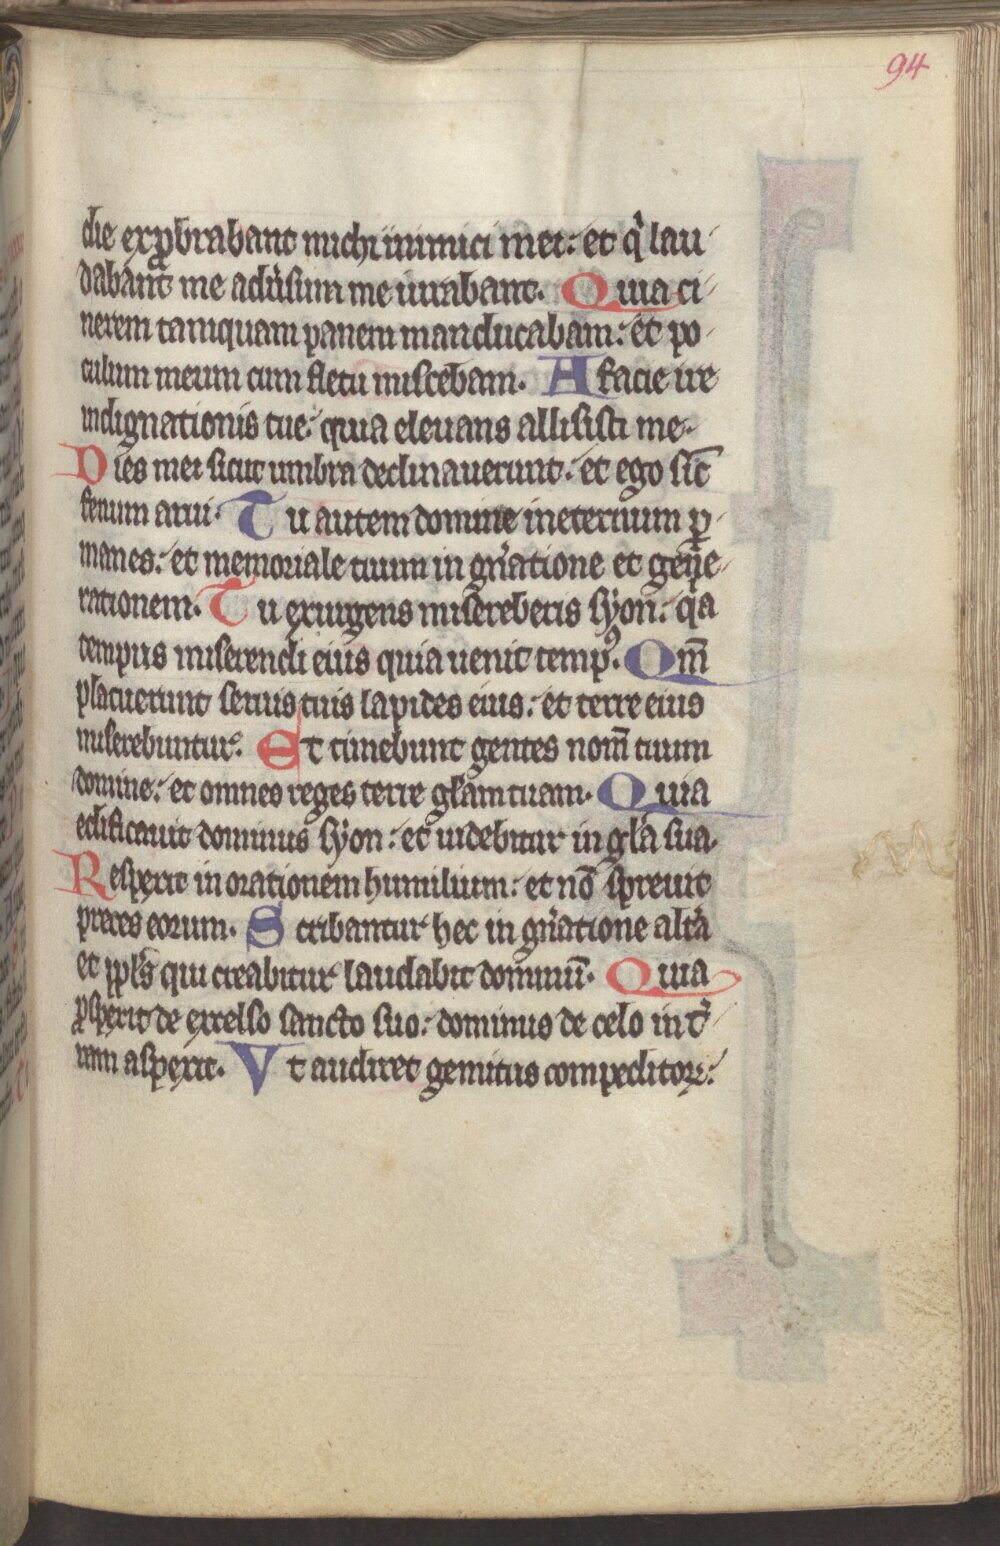 94
die exp̱brabant michi inimici mei: et qͥ lau
dabant me adůsum me iurabant. Quia ci
nerem tamquam panem manducabam: et po
culum meum cum fletu miscebam. A facie ire
indignationis tue: quia eleuans allisisti me.
Dies mei sicut umbra declinauerunt: et ego sic̄
fenum arui. Tu autem domine in eternum ꝑ
manes: et memoriale tuum in gn̄atione et gene
rationem. Tu exurgens misereberis syon: qͥa
tempus miserendi eius quia uenit tempꝰ. Qm̄
placuerunt seruis tuis lapides eius: et terre eius
miserebuntur. Et timebunt gentes nom̄ tuum
domine: et omnes reges terre gl̄am tuam. Quia
edificauit dominus syon: et uidebitur in gl̄a sua.
Respexit in orationem humilium: et nō spreuit
preces eorum. Scribantur hec in gn̄atione alt̾a
et ppl̄s qui creabitur laudabit dominū. Quia
ꝓspexit de excelso sancto suo: dominus de celo in t̾
ram aspexit. Vt audiret gemitus compeditoꝝ: